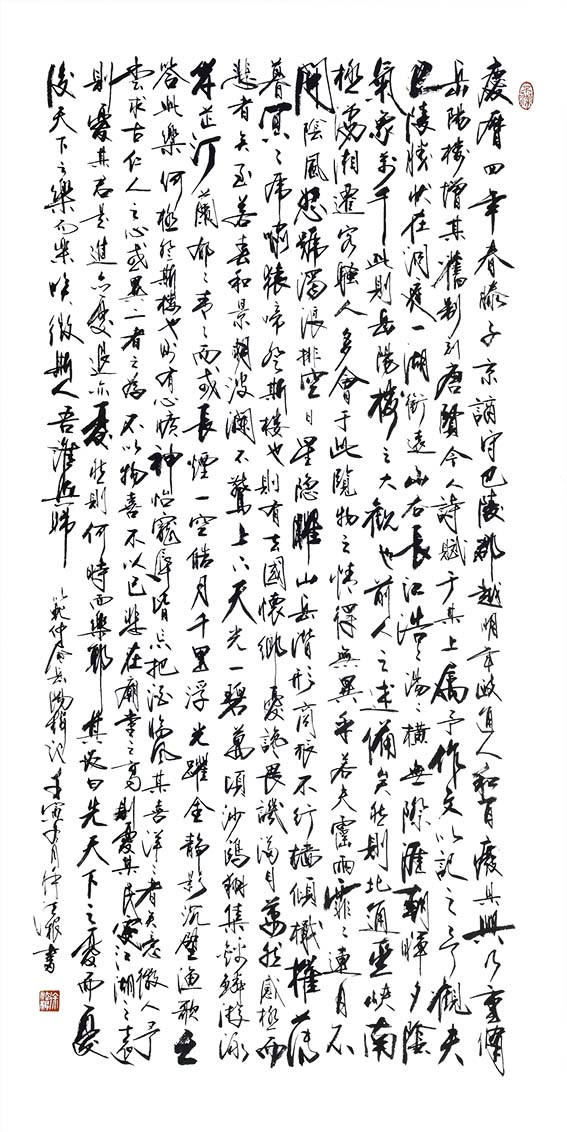 慶曆四年春滕子京謫守巴陵郡越明年政通人和百廢具興乃重修
岳陽樓增其舊制刻唐賢今人詩賦于其上屬予作文以記之予觀夫
巴陵勝狀在洞庭一湖銜遠山吞長江浩浩湯湯橫無際涯朝暉夕陰
氣象萬千此則岳陽樓之大觀也前人之述備矣然則北通巫峽南
極瀟湘遷客騷人多會于此覽物之情得無異乎若夫霪雨霏霏連月不
開陰風怒號濁浪排空日星隱耀山岳潛形商旅不行檣傾楫摧薄
暮冥冥虎嘯猿啼登斯樓也則有去國懷鄉憂讒畏譏滿目蕭然感極而
悲者矣至若春和景明波瀾不驚上下天光一碧萬頃沙鷗翔集錦鱗游泳
岸芷汀蘭郁郁青青而或長煙一空皓月千里浮光躍金靜影沉璧漁歌互
答此樂何極登斯樓也則有心曠神怡寵辱皆忘把酒臨風其喜洋洋者矣嗟夫予
嘗求古仁人之心或異二者之為不以物喜不以己悲在廟堂之高則憂其民處江湖之遠
則憂其君是進亦憂退亦憂然則何時而樂耶其必曰先天下之憂而憂
後天下之樂而樂噫微斯人吾誰與歸
范仲淹岳陽樓記壬寅年月